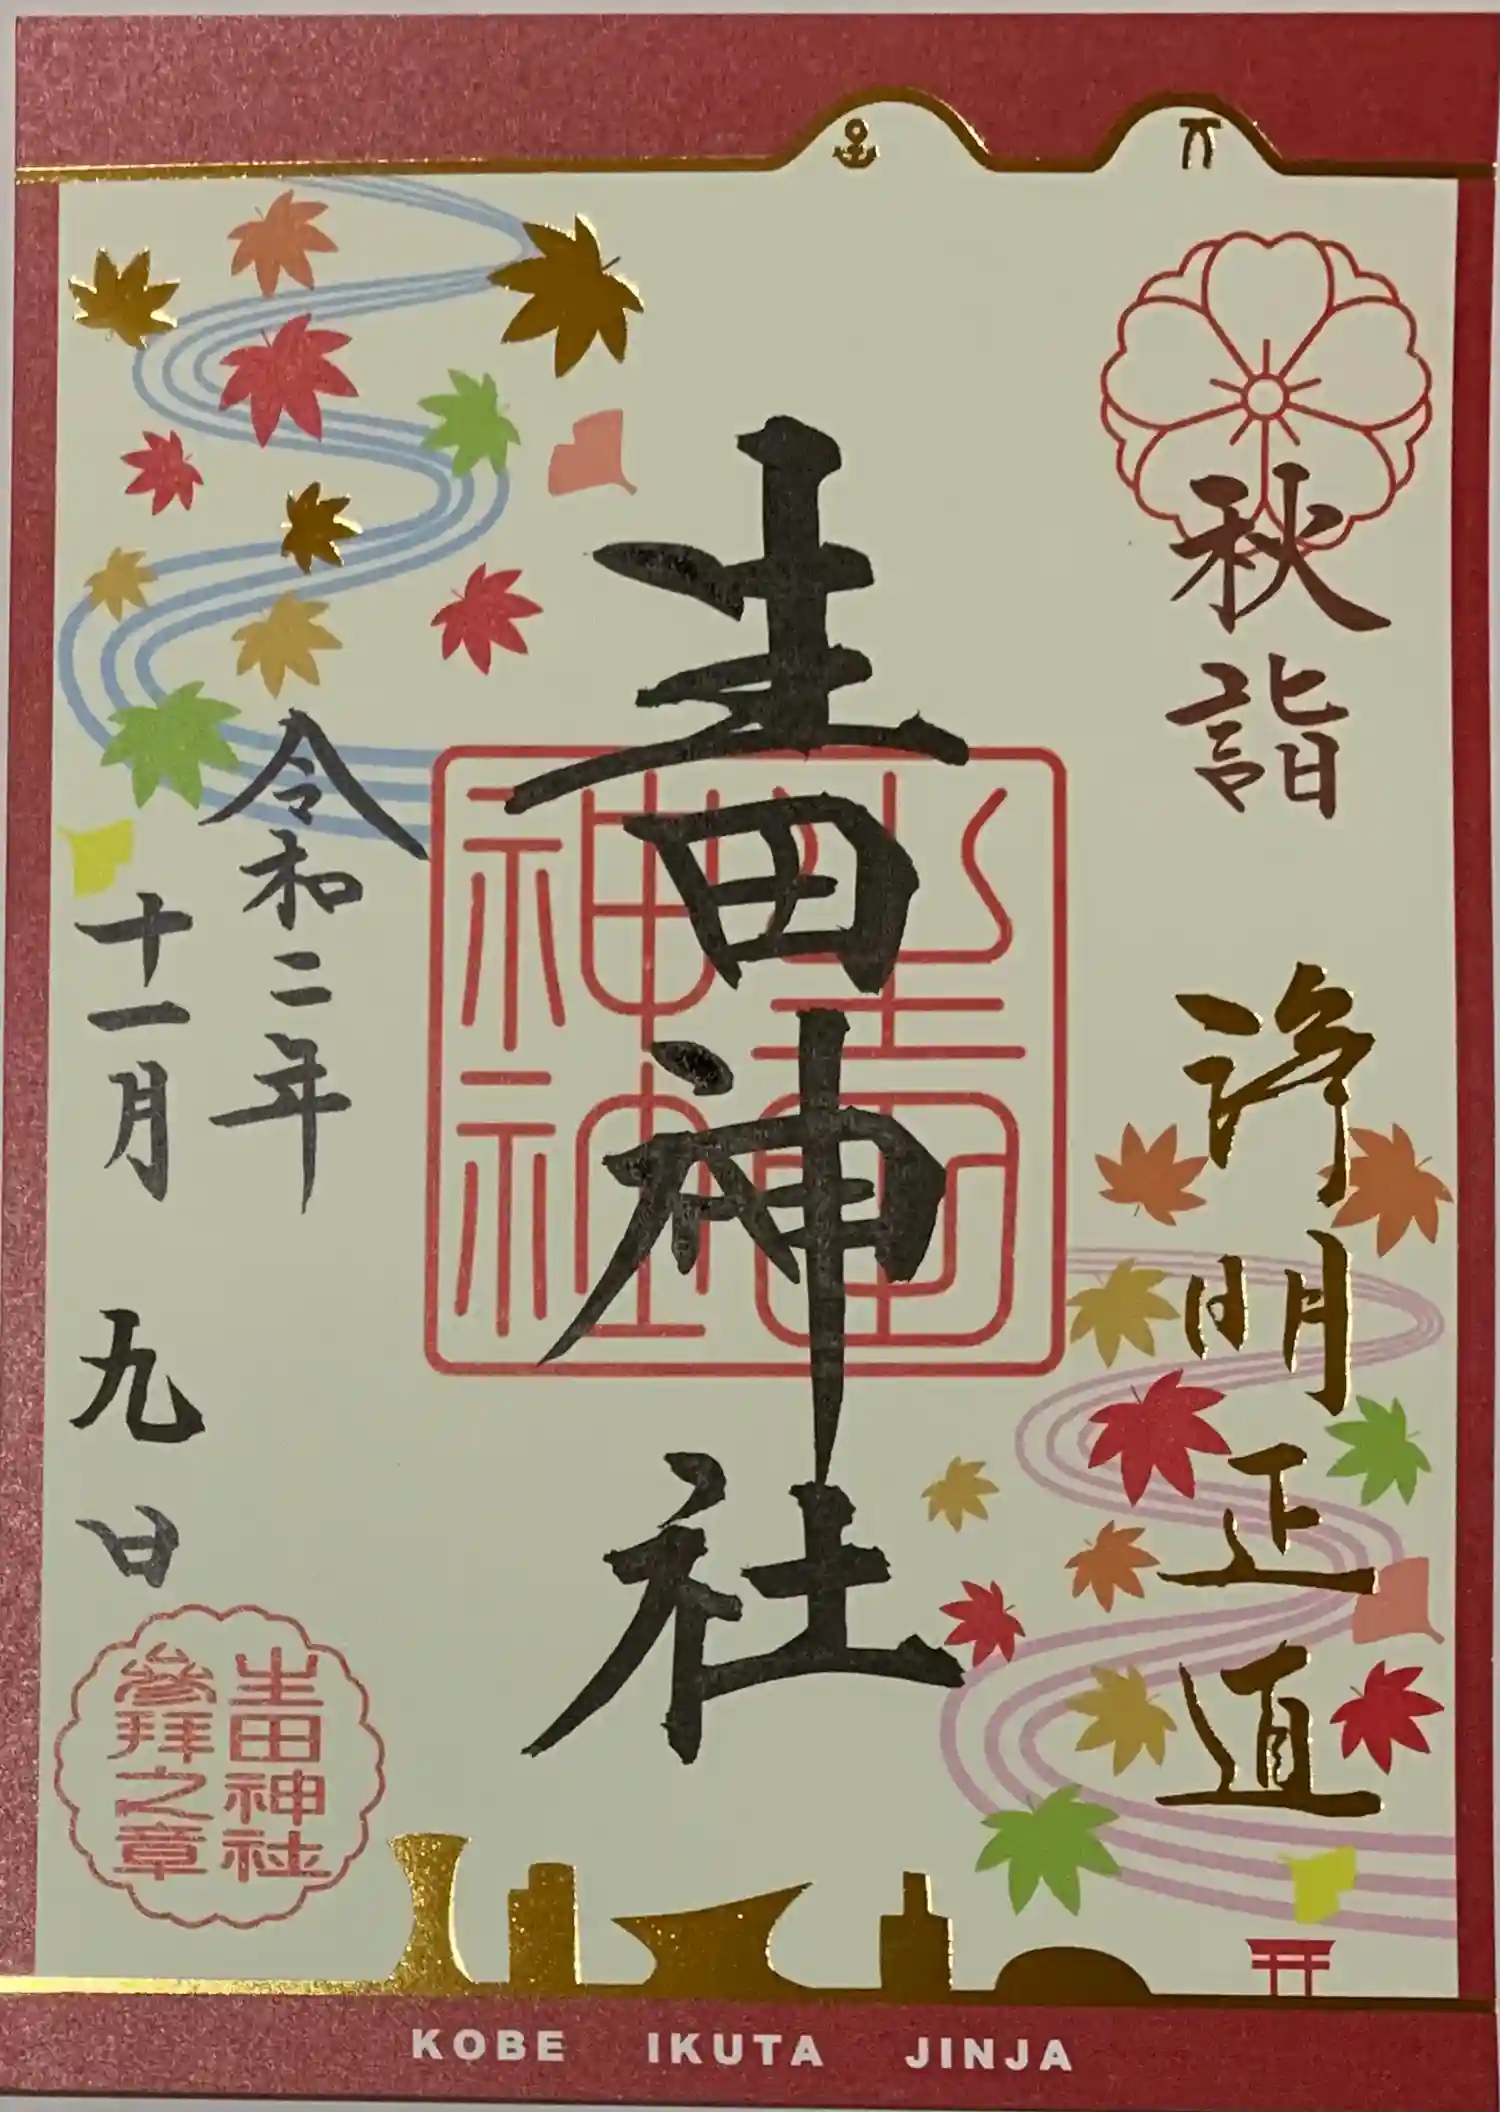 秋詣
浄明正道
生田神社
生田神社
令和二年
十一月 九日
生田神社
參拜之章
KOBE IKUTA JINJA